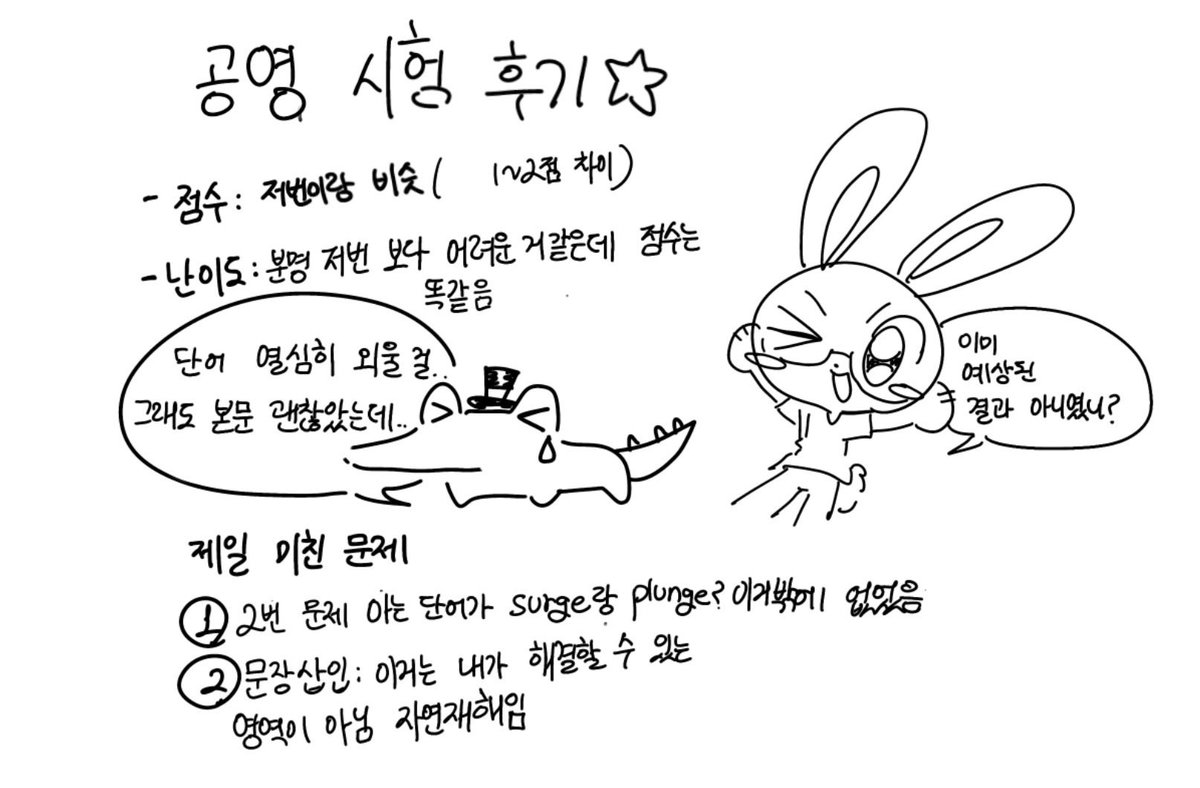 공영 시험 후기☆
- 점수: 저번이랑 비슷( 1~2점 차이)
- 난이도: 분명 저번 보다 어려운 거같은데 점수는
똑같음
단어 열심히 외울 걸..
그래도 본문 괜찮았는데..
이미
예상된
결과 아니였니?
제일 미친 문제
① 2번 문제 아는 단어가 surge랑 plunge? 이거밖에 없었음
② 문장삽입: 이거는 내가 해결할 수 있는
영역이 아님 자연재해임